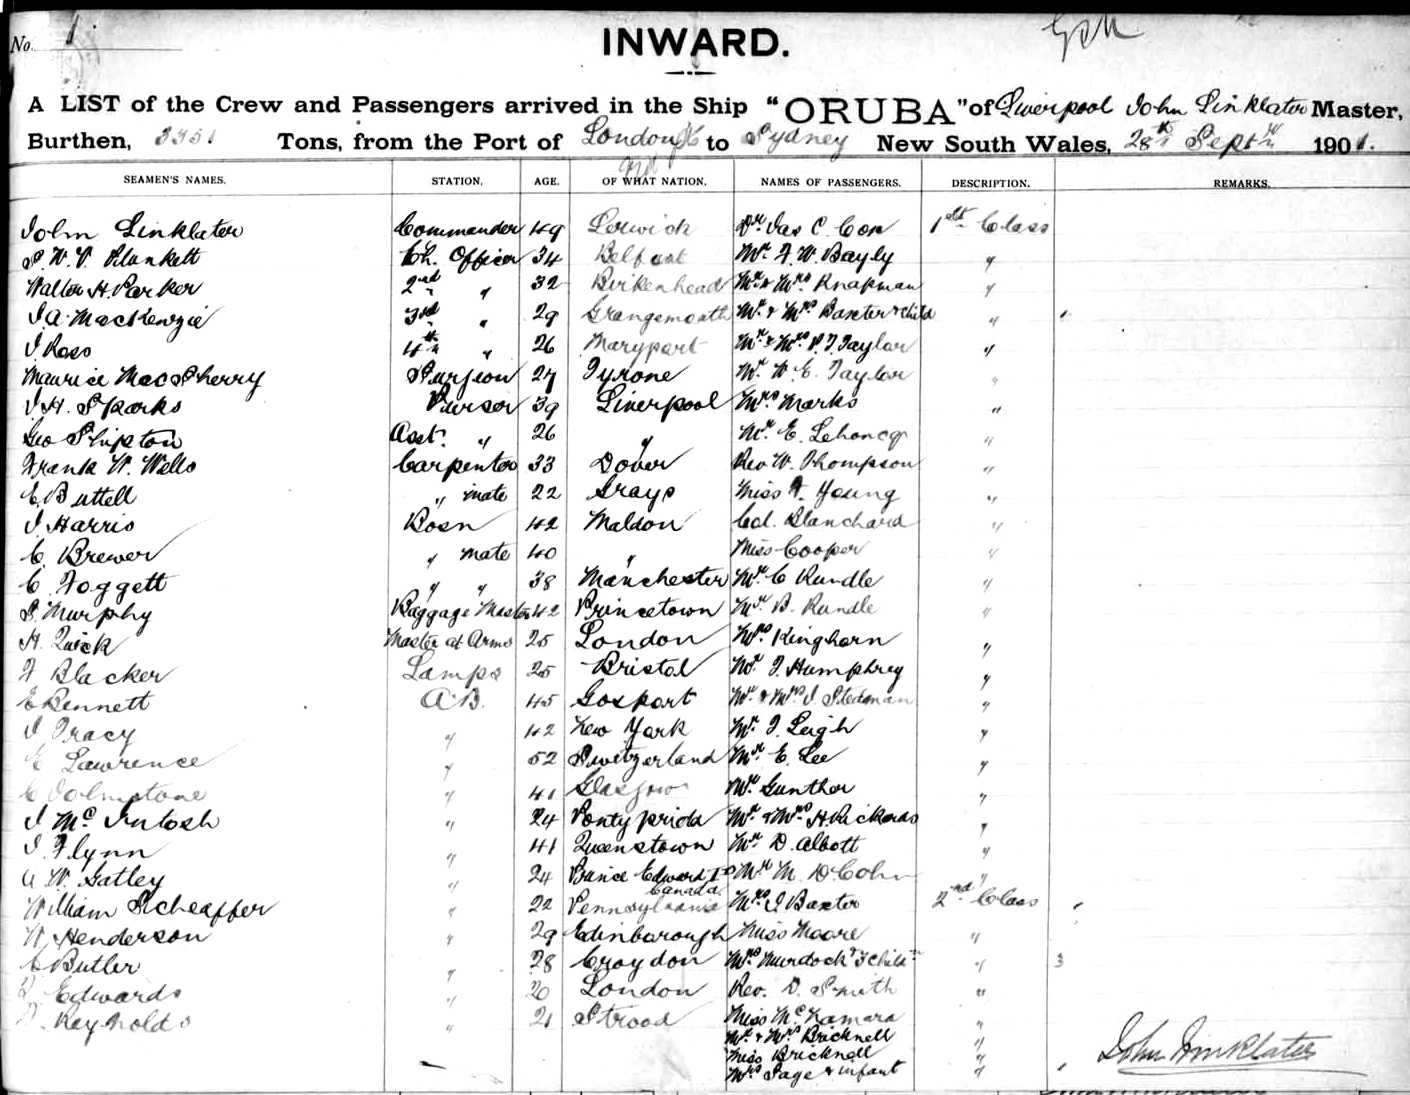 No. 1
INWARD.
A LIST of the Crew and Passengers arrived in the Ship "ORUBA" of Liverpool John Linklater Master,
Burthen, 3351 Tons, from the Port of London to Sydney New South Wales, 28th Sept 1901.
SEAMEN'S NAMES. STATION. AGE. OF WHAT NATION. NAMES OF PASSENGERS. DESCRIPTION. REMARKS.
John Linklater Commander 49 Lerwick Dr. Jas C. Cox 1st Class
W. V. Plunkett Ch. Officer 34 Belfast Mr. F. W. Bayly "
Walter H. Parker 2nd " 32 Birkenhead Mr & Mrs Knapman "
J A MacKenzie 3rd " 29 Grangemouth Mr. & Mrs Baxter & child "
J Ross 4th " 26 Maryport Mr. & Mrs P. J. Taylor "
Maurice MacSherry Surgeon 27 Tyrone Mr. W. E. Taylor "
J. H. Sparks Purser 39 Liverpool Mrs Marks "
Geo Shipton Asst. " 26 " Mr. E. Lehoncq "
Frank W. Wells Carpenter 33 Dover Rev W. Thompson "
E. Buttell " mate 22 Grays Miss F. Young "
J Harris Bosn 42 Maldon Col. Blanchard "
C. Brewer " mate 40 " Miss Cooper "
C. Foggett " " 38 Manchester Mr. C Rundle "
S. Murphy Baggage Master 42 Princetown Mr. B. Rundle "
H. Quick Master at Arms 25 London Mrs Kinghorn "
F Blacker Lamps 25 Bristol Mr. J. Humphrey "
E Bennett A.B. 45 Gosport Mr & Mrs J. Stedman "
J Tracy " 42 New York Mr. J. Leigh "
E Lawrence " 52 Switzerland Mr. E. Lee "
C Johnstone " 41 Glasgow Mr. Gunther "
J McIntosh " 24 Pontypridd Mr & Mrs H Rickards "
J. Flynn " 41 Queenstown Mr. D. Abbott "
A W. Gatley " 24 Prince Edward Id Canada Mr M. D. Cohn "
William Scheaffer " 22 Pennsylvania Mrs J Baxter 2nd Class
W. Henderson " 29 Edinborough Miss Moore "
C Butler " 28 Croydon Mrs Murdock & 3 childn " 3
Edwards " 20 London Rev. D. Smith "
Reynolds " 21 Strood Miss McNamara "
Mr. & Mrs Bricknell "
Miss Bricknell "
Mrs Page & infant "
John Linklater